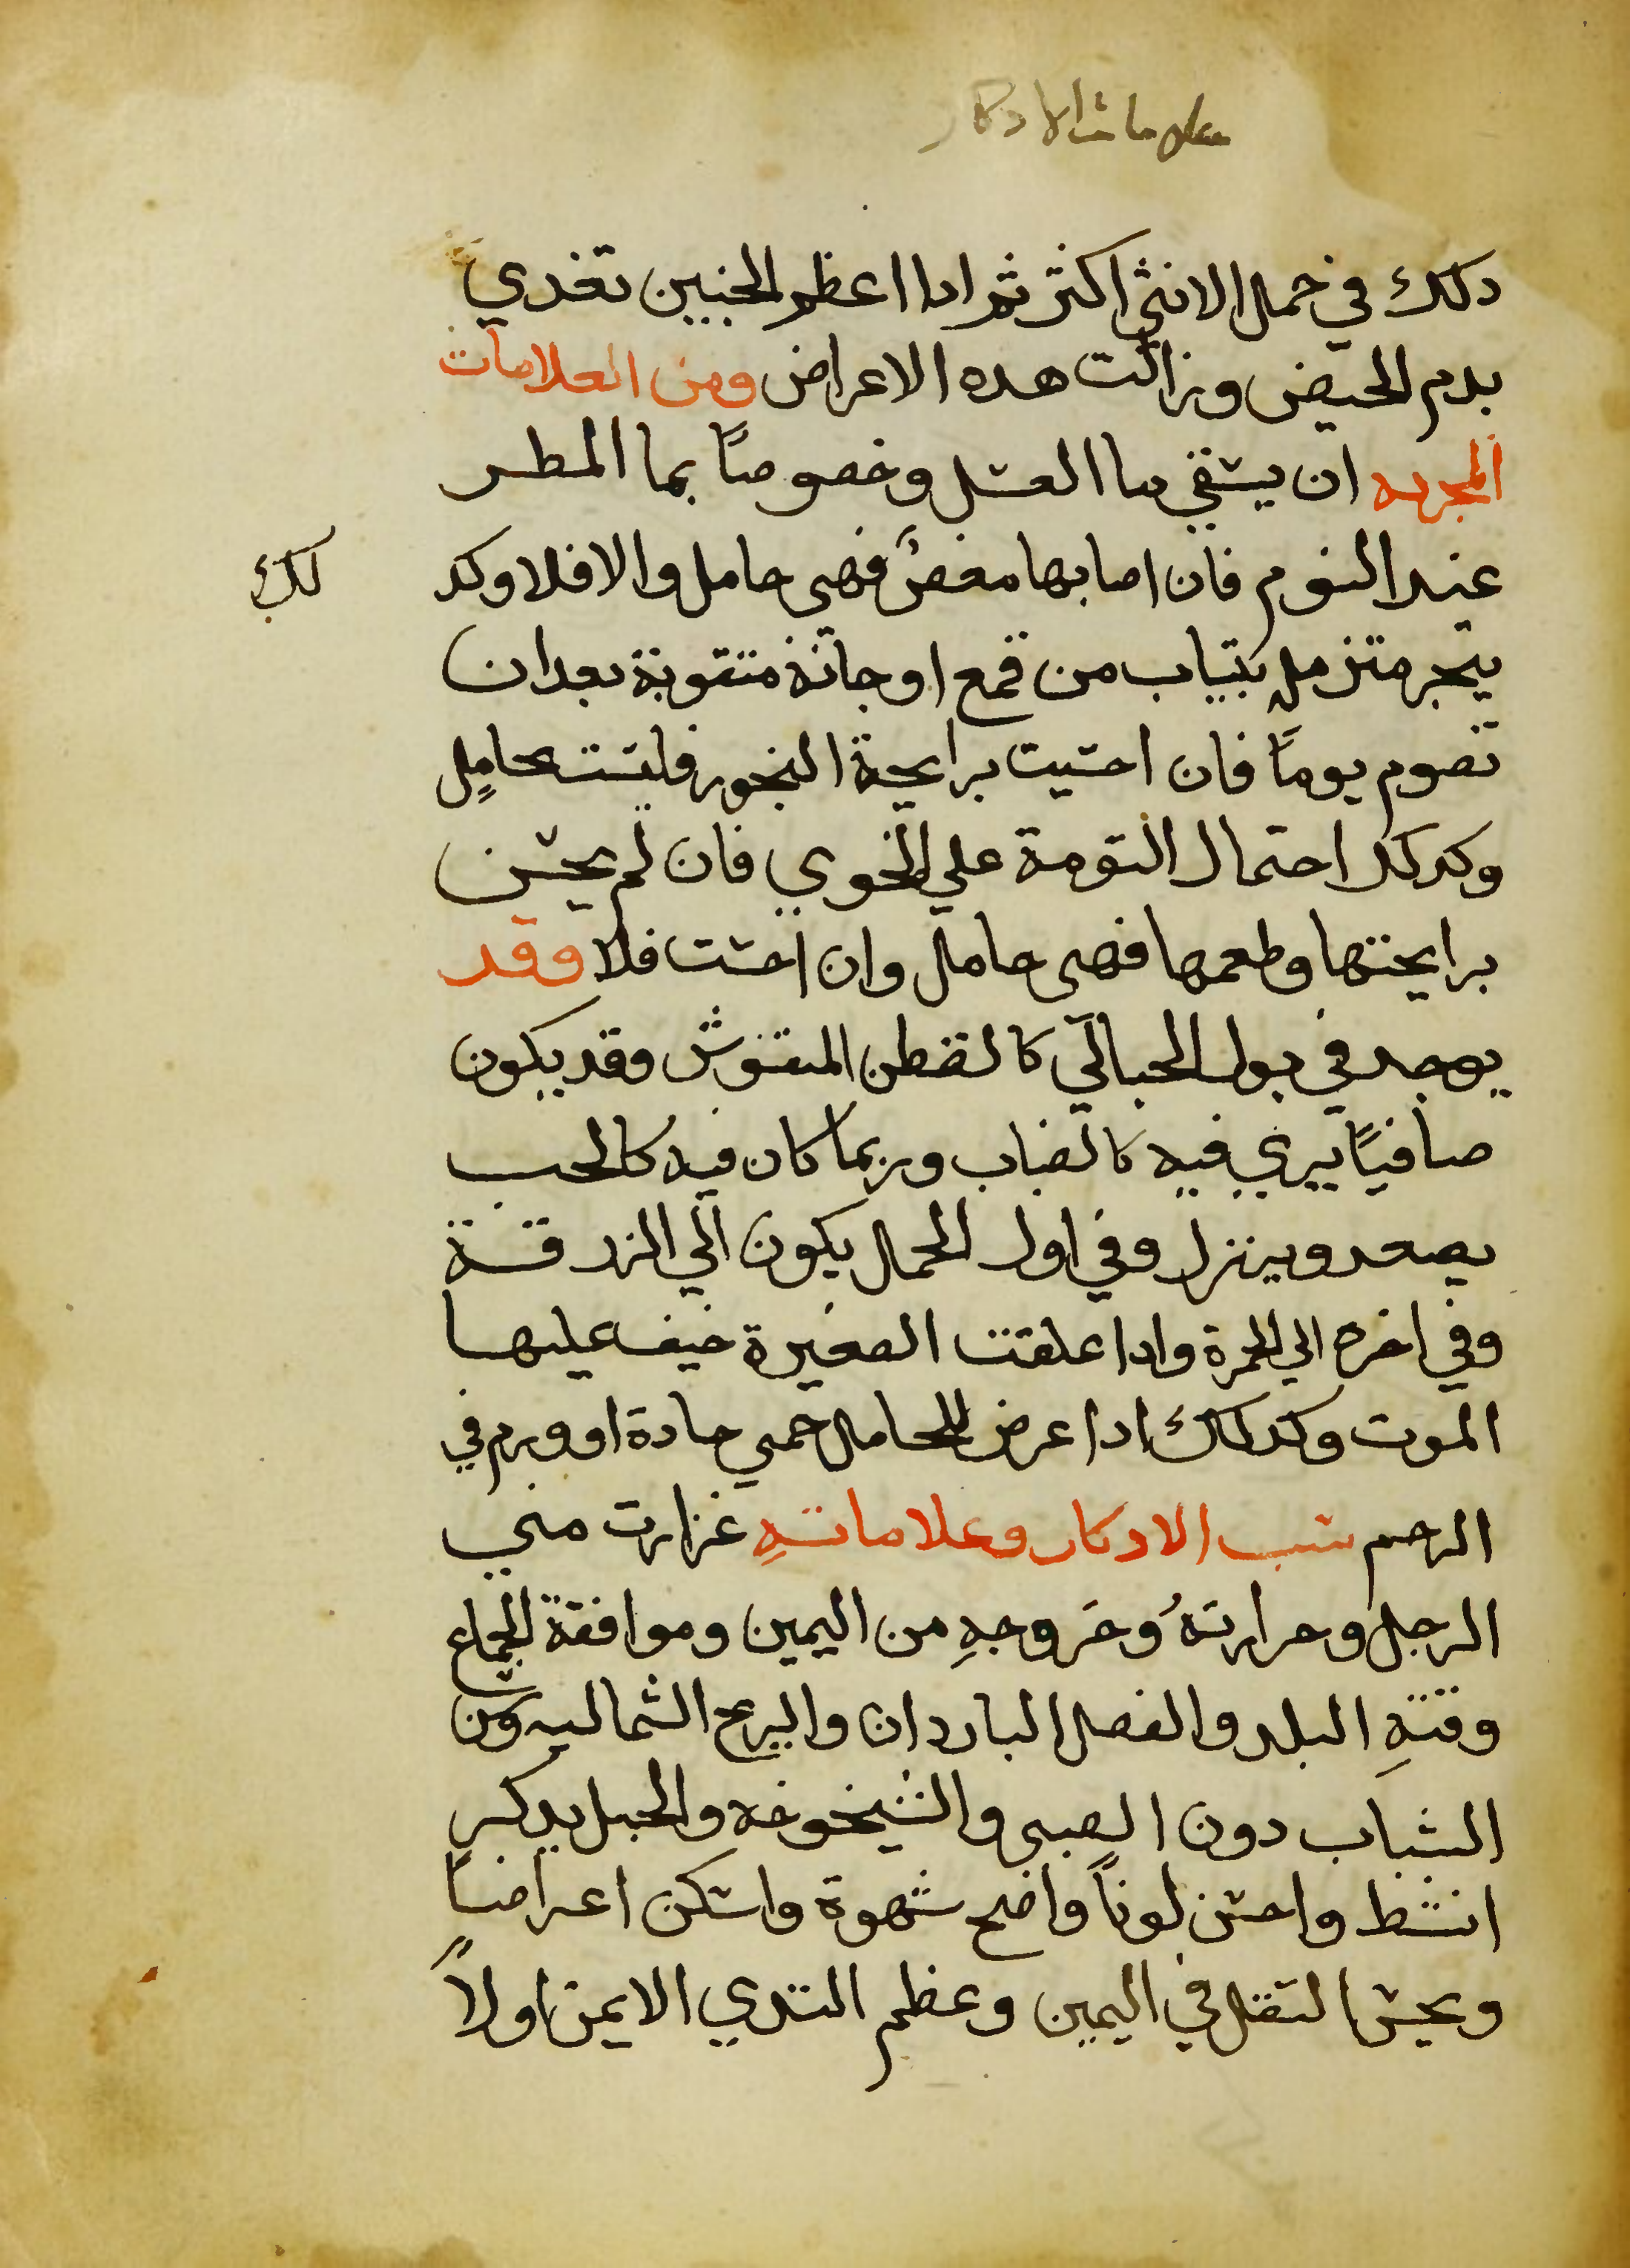 علامات الادكار
دلك في حمل الانثي اكثر ثم ادا اعظم الجنين تغدي
بدم الحيض وزالت هده الاعراض ومن العلامات
المجربه ان يسقي ما العسل وخصوصًا بما المطر
عند النوم فان اصابها مغصٌ فهي حامل والافلا وكد
لك
يبخر متزملٍ بتياب من قمع او جانة متقوبة بعد ان
تصوم يومًا فان احسيت برايحة البخور فليست بحاملٍ
وكدلك احتمال التومة علي الخوي فان لم يحسن
برايحتها وطعمها فهي حامل وان احست فلا وقد
يوجد في بول الحبالي كالقطن المنفوش وقد يكون
صافيًا يري فيه كالضباب وربما كان فيه كالحب
يصعد وينزل وفي اول الحمل يكون الي الزرقة
وفي اخره الي الحمرة وادا علقت الصغيرة خيف عليها
الموت وكدلك ادا عرض للحامل حمي حادة او ورم في
الرحم سبب الادكار وعلاماتهِ غزارت مني
الرجل وحرارتهُ وخروجهِ من اليمين وموافقة الجماع
وقتهِ البلد والفصل الباردان والريح الشماليه وسن
الشباب دون الصبي والشيخوخه والحبل بدكرٍ
انشط واحسن لوناً واصح شهوة واسكن اعراضاً
وبحس التقل في اليمين وعظم التدي الايمن اولاً